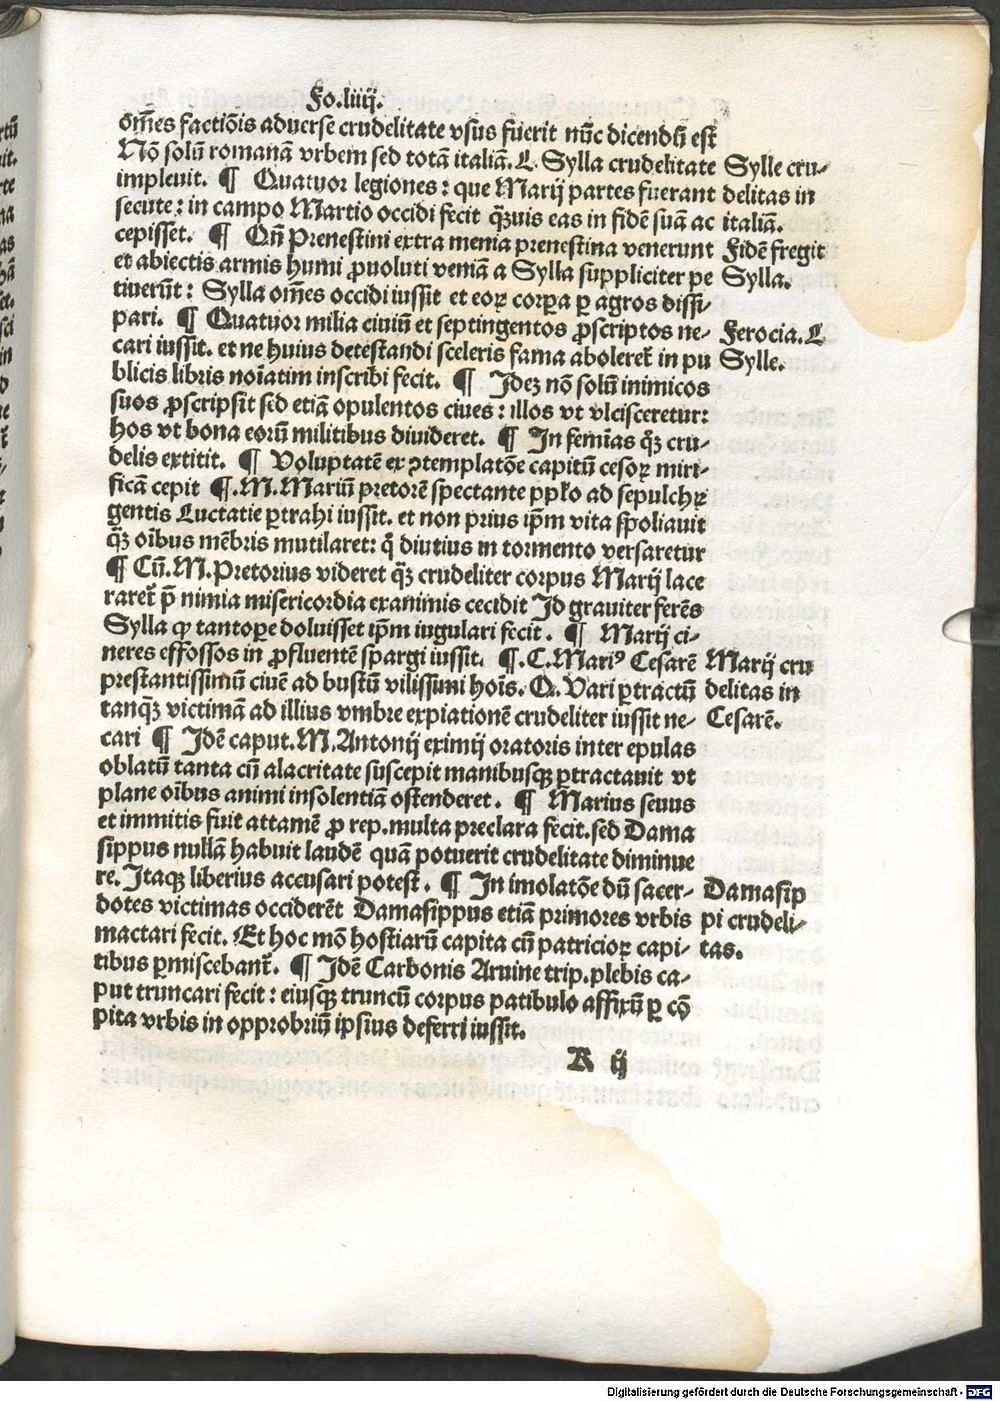 Fo.liiij.
om̄es factiōis aduerse crudelitate vsus fuerit nūc dicendū est
Nō solū romanā vrbem sed totā italiā. L. Sylla crudelitate
impleuit. ¶ Quatuor legiones : que Marij partes fuerant
secute : in campo Martio occidi fecit qꝫuis eas in fidē suā ac
cepisset. ¶ Qn̄ Prenestini extra menia prenestina venerunt
et abiectis armis humi ꝓuoluti veniā a Sylla suppliciter pe
tiuerūt : Sylla om̄es occidi iussit et eoꝝ corꝑa ꝑ agros dissi-
pari. ¶ Quatuor milia ciuiū et septingentos ꝓscriptos ne-
cari iussit. et ne huius detestandi sceleris fama aboleret̄ in pu
blicis libris noīatim inscribi fecit. ¶ Idez nō solū inimicos
suos ꝓscripsit sed etiā opulentos ciues : illos vt vlcisceretur:
hos vt bona eorū militibus diuideret. ¶ In femīas qꝫ cru-
delis extitit. ¶ Voluptatē ex ꝯtemplatōe capitū cesoꝝ miri-
ficā cepit ¶.M.Mariū pretorē spectante ppl̄o ad sepulchꝝ
gentis Luctatie ꝑtrahi iussit. et non prius ip̄m vita spoliauit
qꝫ oībus mēbris mutilaret: q̄ diutius in tormento versaretur
¶ Cū.M.Pretorius videret qꝫ crudeliter corpus Marij lace
raret̄ p̄ nimia misericordia exanimis cecidit Id grauiter ferēs
Sylla ꝙ tantoꝑe doluisset ip̄m iugulari fecit. ¶ Marij ci-
neres effossos in ꝓfluentē spargi iussit. ¶.C.Mariꝰ Cesarē
prestantissimū ciuē ad bustū vilissimi hoīs. Q. Vari ꝑtractū
tanqꝫ victimā ad illius vmbre expiationē crudeliter iussit ne-
cari ¶ Idē caput.M.Antonij eximij oratoris inter epulas
oblatū tanta cū alacritate suscepit manibusqꝫ ꝑtractauit vt
plane oībus animi insolentiā ostenderet. ¶ Marius seuus
et immitis fuit attamē ꝓ rep.multa preclara fecit.sed Dama
sippus nullā habuit laudē quā potuerit crudelitate diminue
re. Itaqꝫ liberius accusari potest. ¶ In imolatōe dū sacer-
dotes victimas occiderēt Damasippus etiā primores vrbis
mactari fecit. Et hoc mō hostiarū capita cū patricioꝝ capi-
tibus ꝑmiscebant̄. ¶ Idē Carbonis Aruine trip.plebis ca-
put truncari fecit : eiusqꝫ truncū corpus patibulo affixū ꝑ cō
pita vrbis in opprobriū ipsius deferri iussit.
Sylle cru-
delitas in
italiā.
Fidē fregit
Sylla.
Ferocia. L
Sylle.
Marij cru
delitas in
Cesarē.
Damasip
pi crudeli-
tas.
K ij
Digitalisierung gefördert durch die Deutsche Forschungsgemeinschaft - DFG